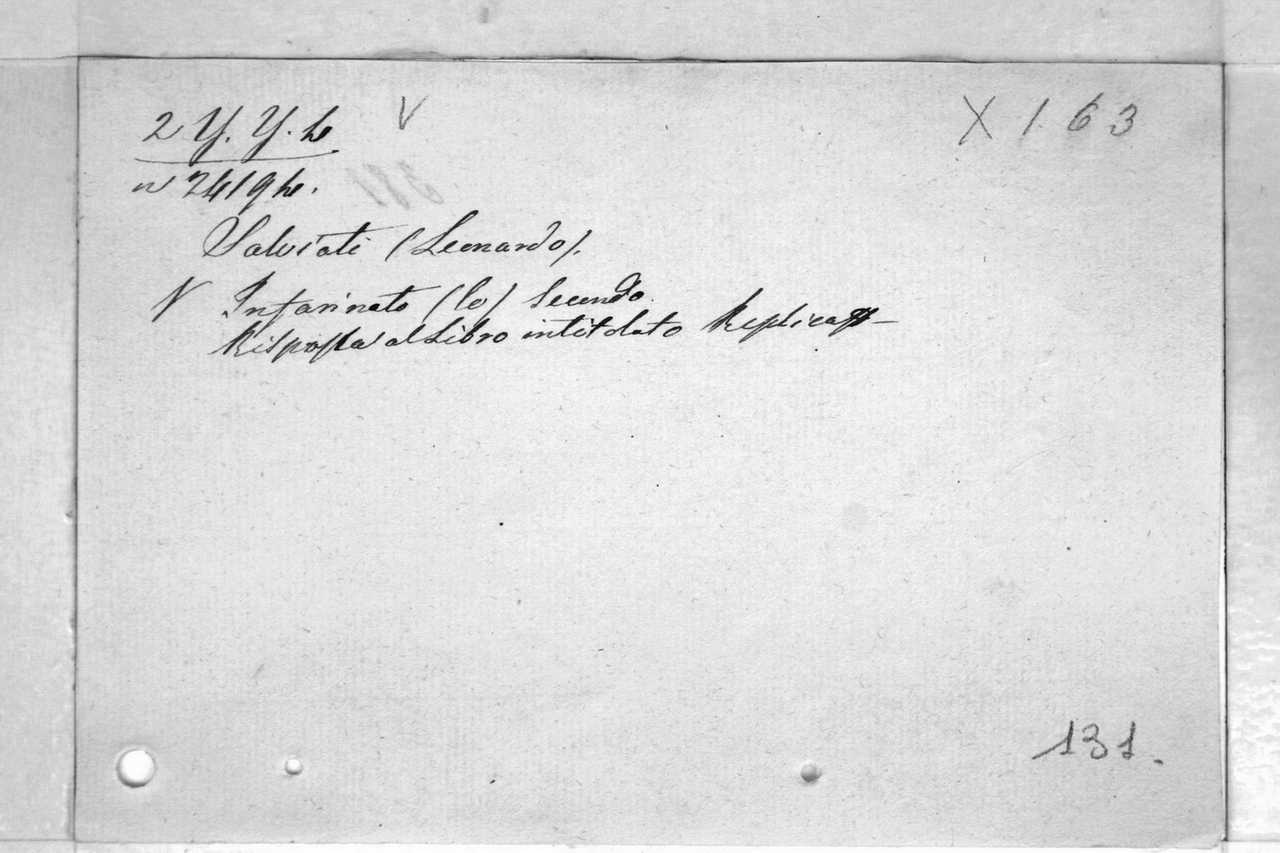 2 Y. Y. h V X 163
n 2419 h.
Salviati (Leonardo).
V Infarinato (lo) Secondo.
Risposta al Libro intitolato Replica
131.